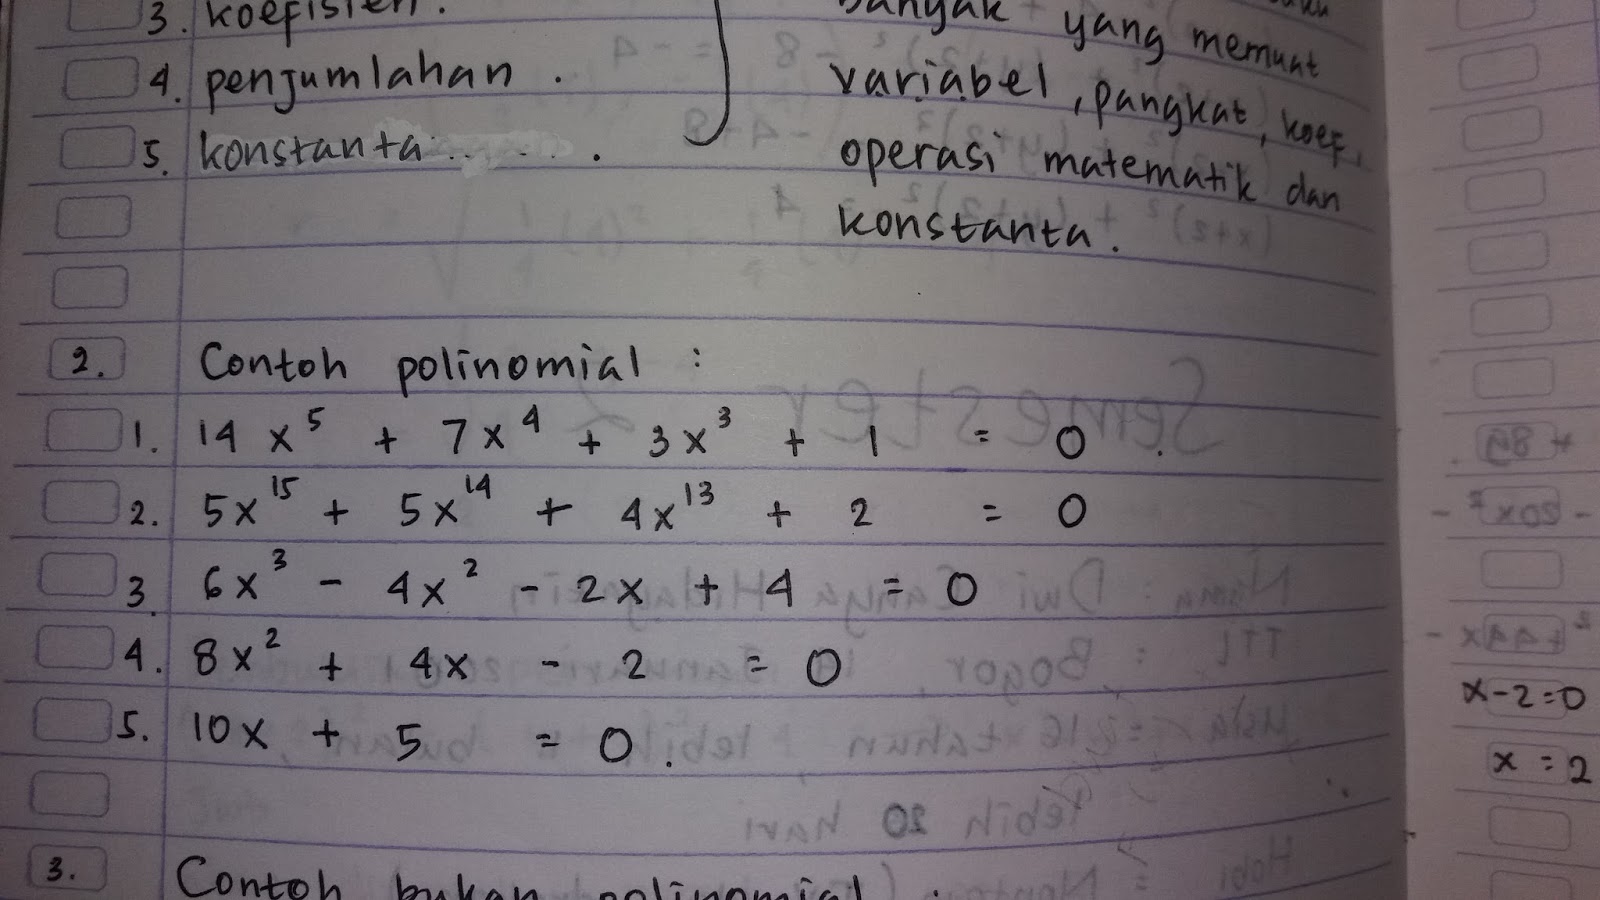 3. koefisien.
4. penjumlahan.
5. konstanta.......
banyak yang memuat
variabel, pangkat, koef,
operasi matematik dan
konstanta.
2. Contoh polinomial :
1. 14x⁵ + 7x⁴ + 3x³ + 1 = 0.
2. 5x¹⁵ + 5x¹⁴ + 4x¹³ + 2 = 0
3. 6x³ - 4x² - 2x + 4 = 0
4. 8x² + 4x - 2 = 0
5. 10x + 5 = 0.
3. Contoh bukan polinomial :
x-2=0
x = 2